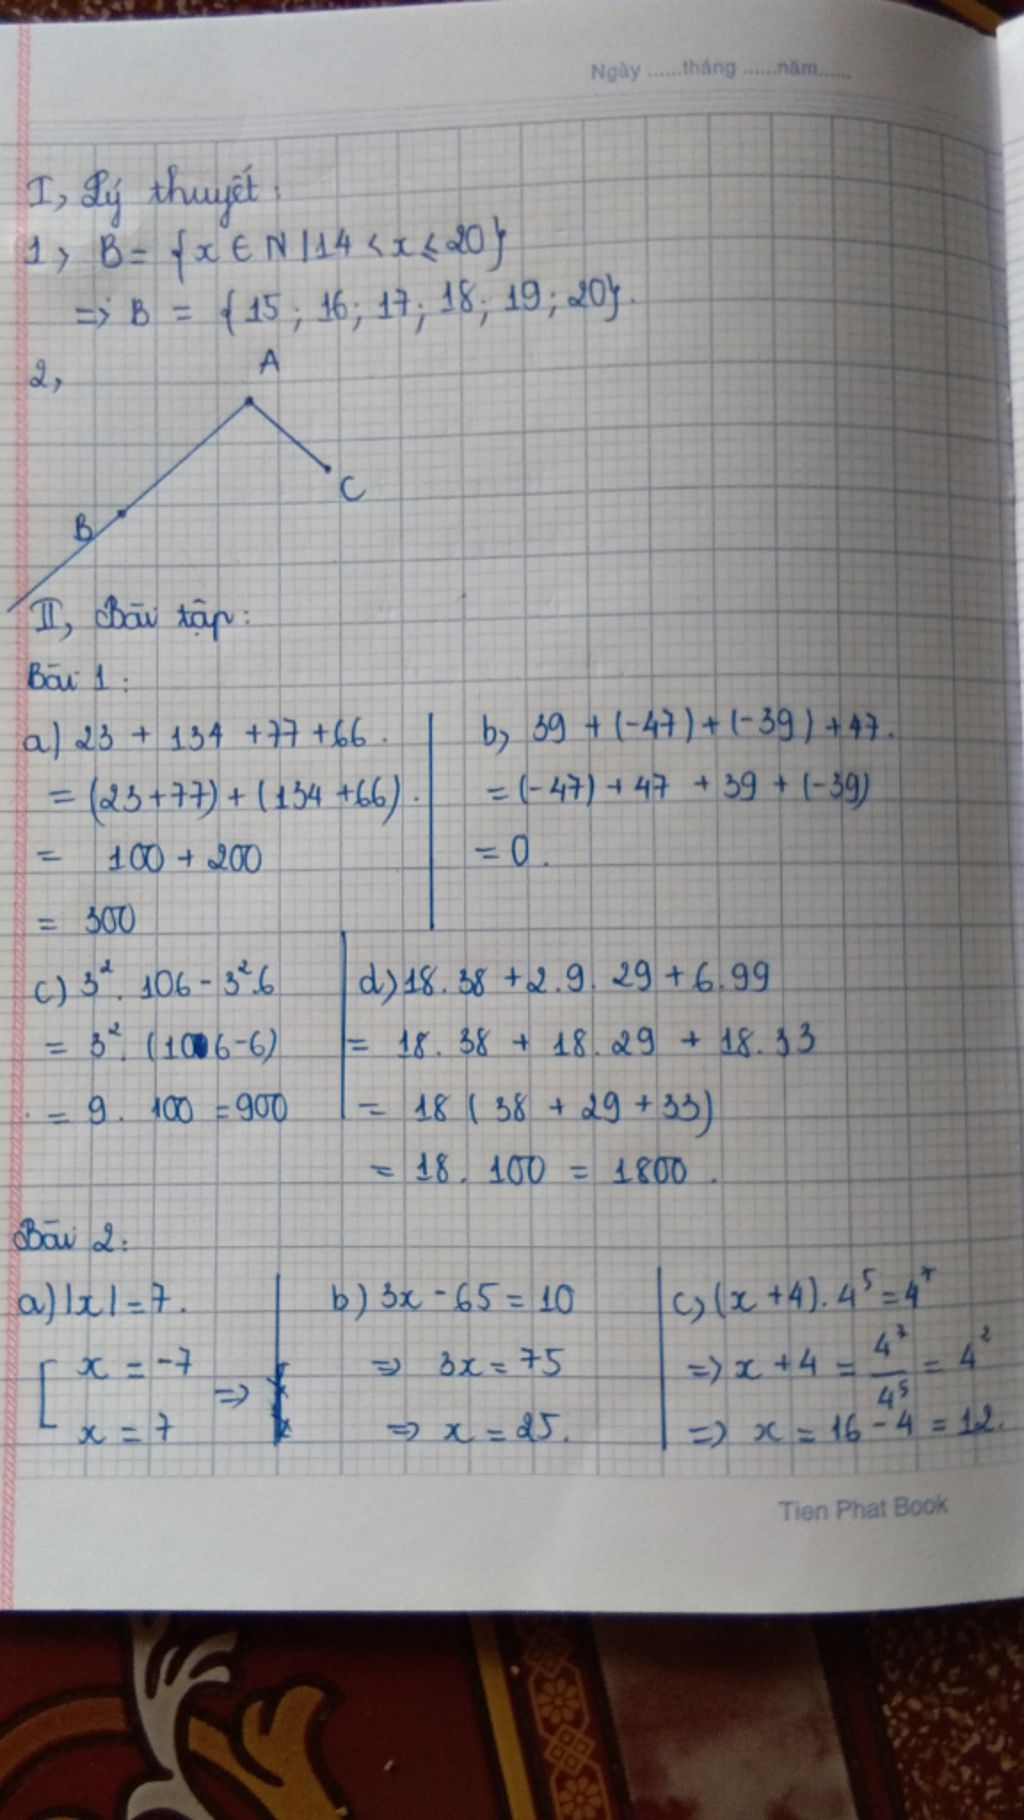 Ngày ......tháng ......năm......
I, Lý thuyết:
1, B = {x ∈ N | 14 < x ≤ 20}
=> B = {15; 16; 17; 18; 19; 20}.
2,
A
C
B
II, Bài tập:
Bài 1:
a) 23 + 134 + 77 + 66.
= (23+77) + (134 +66).
= 100 + 200
= 300
b, 39 + (-47) + (-39) + 47.
= (-47) + 47 + 39 + (-39)
= 0.
c) 3². 106 - 3².6
= 3². (106-6)
= 9. 100 = 900
d) 18.38 + 2.9.29 + 6.99
= 18.38 + 18.29 + 18.33
= 18 (38 + 29 + 33)
= 18. 100 = 1800.
Bài 2:
a) |x| = 7.
[ x = -7
x = 7 =>
b) 3x - 65 = 10
=> 3x = 75
=> x = 25.
c, (x + 4). 4⁵ = 4⁷
=> x + 4 = 4⁷/4⁵ = 4²
=> x = 16 - 4 = 12.
Tien Phat Book